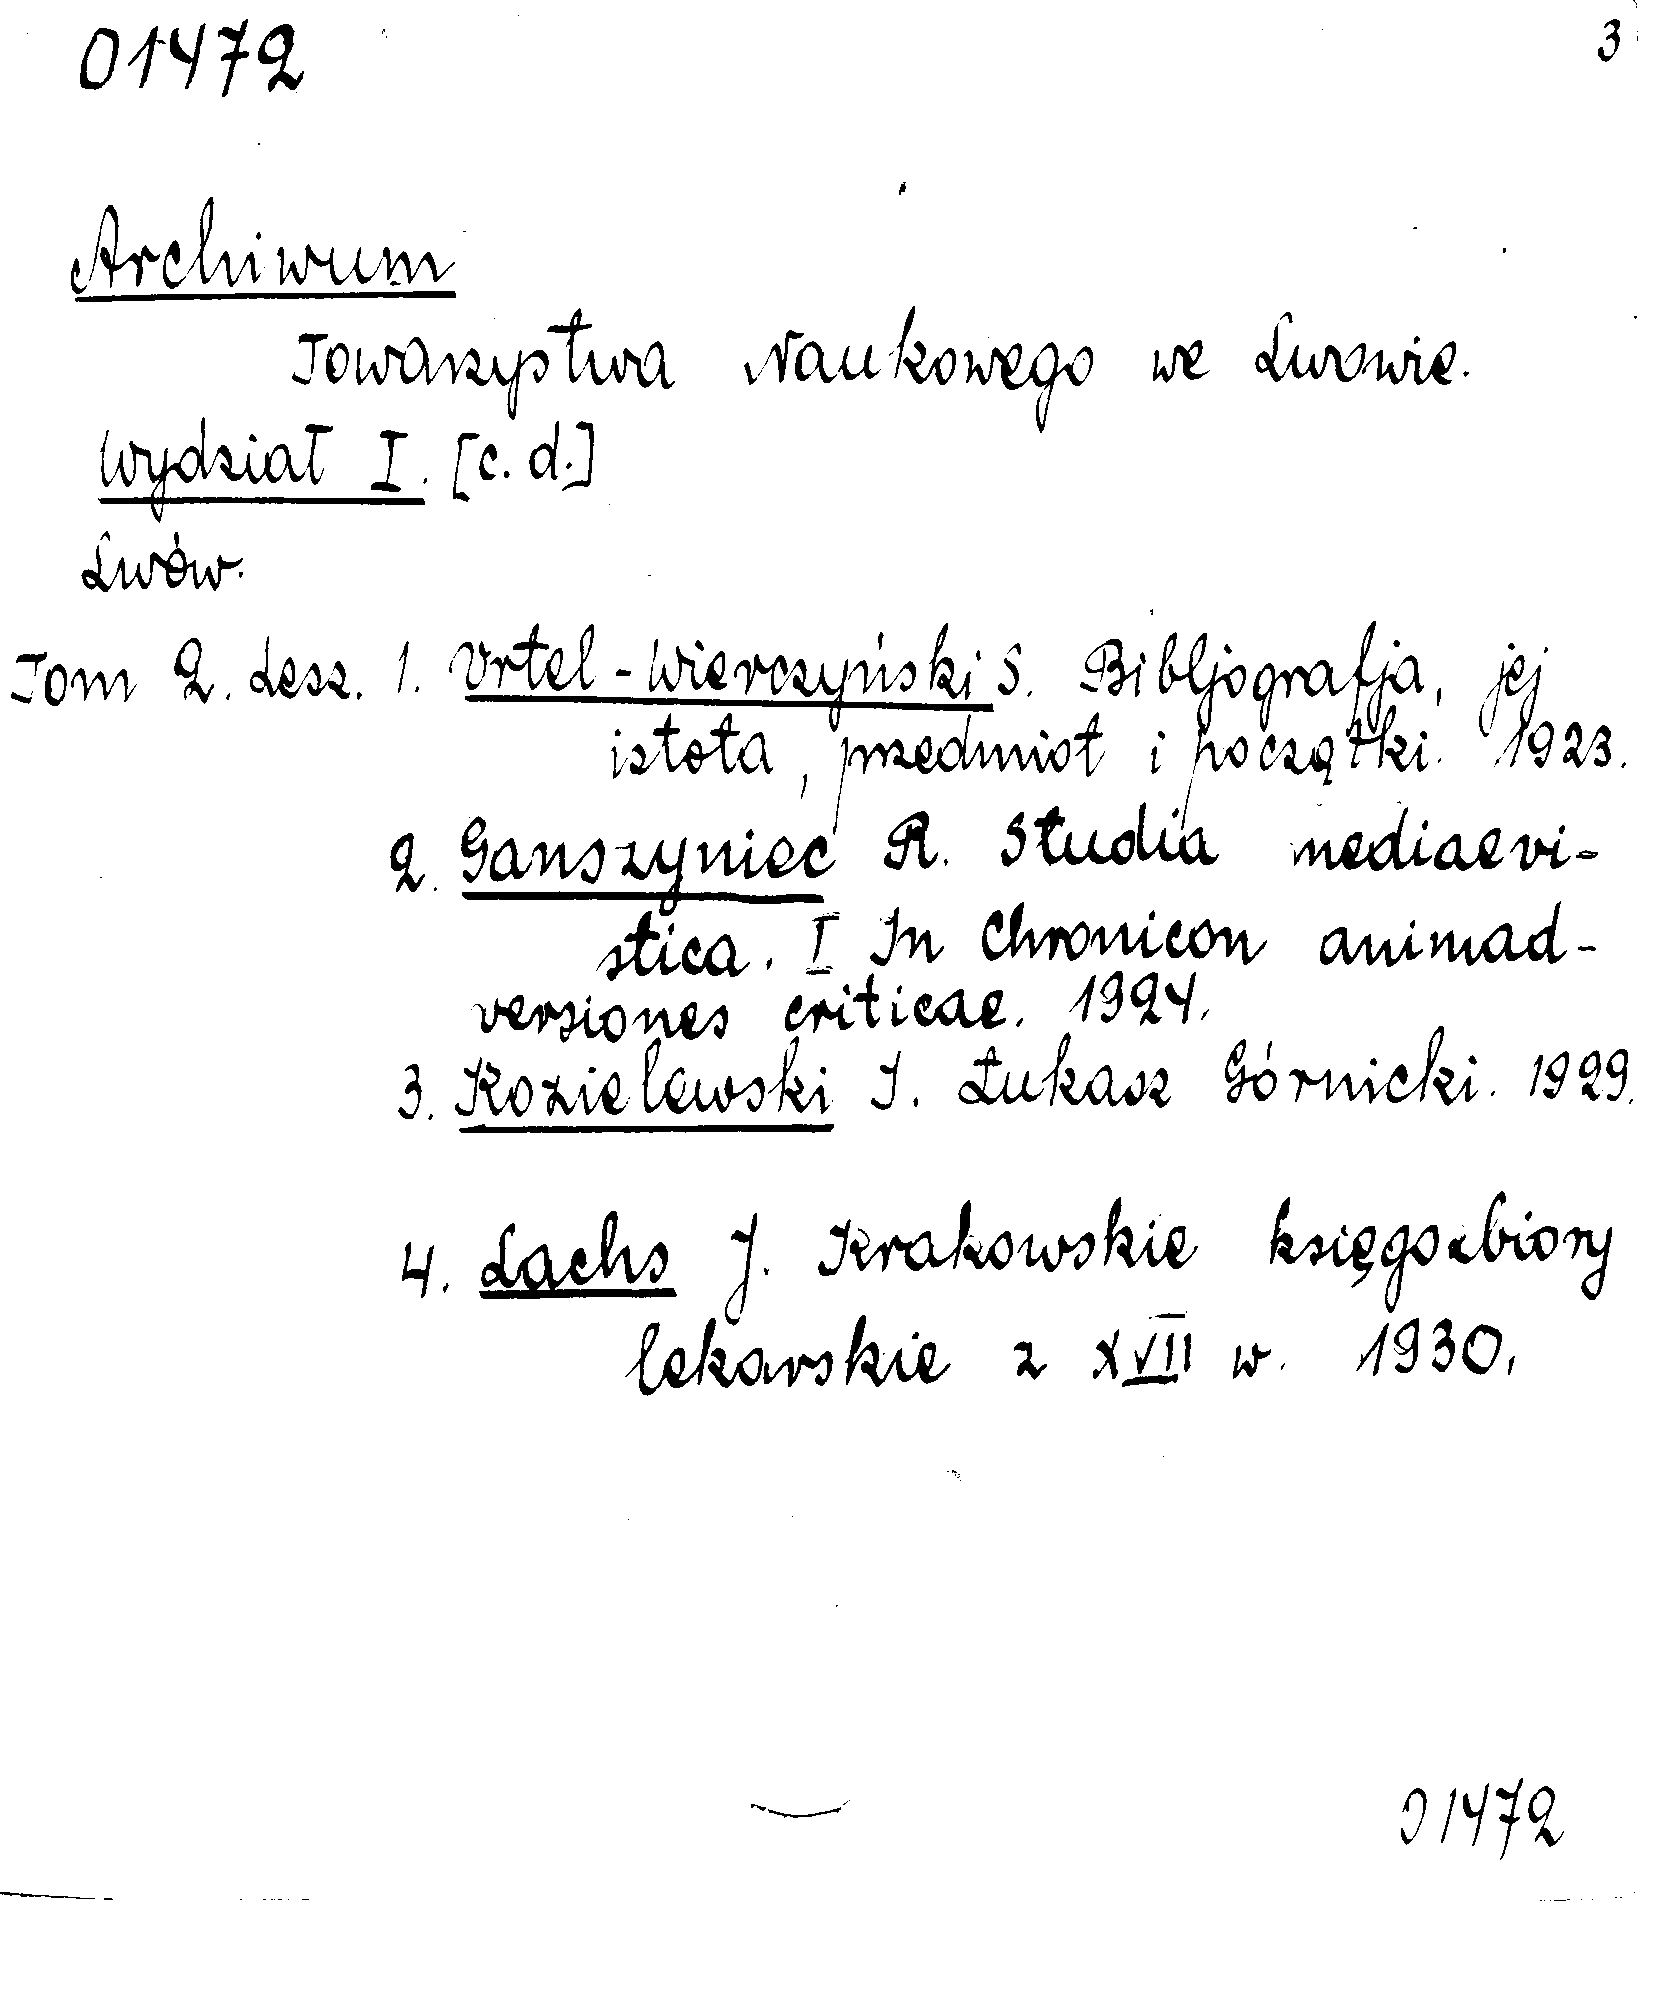 01472
3
Archiwum
Towarzystwa Naukowego we Lwowie.
Wydział I. [c. d.]
Lwów.
Tom 2. Zesz. 1. Vrtel-Wierczyński S. Bibljografja, jej
istota, przedmiot i początki. 1923.
2. Ganszyniec R. Studia mediaevi-
stica. I In Chronicon animad-
versiones criticae. 1924.
3. Kozielewski I. Łukasz Górnicki. 1929.
4. Lachs J. Krakowskie księgozbiory
lekarskie z XVII w. 1930.
01472